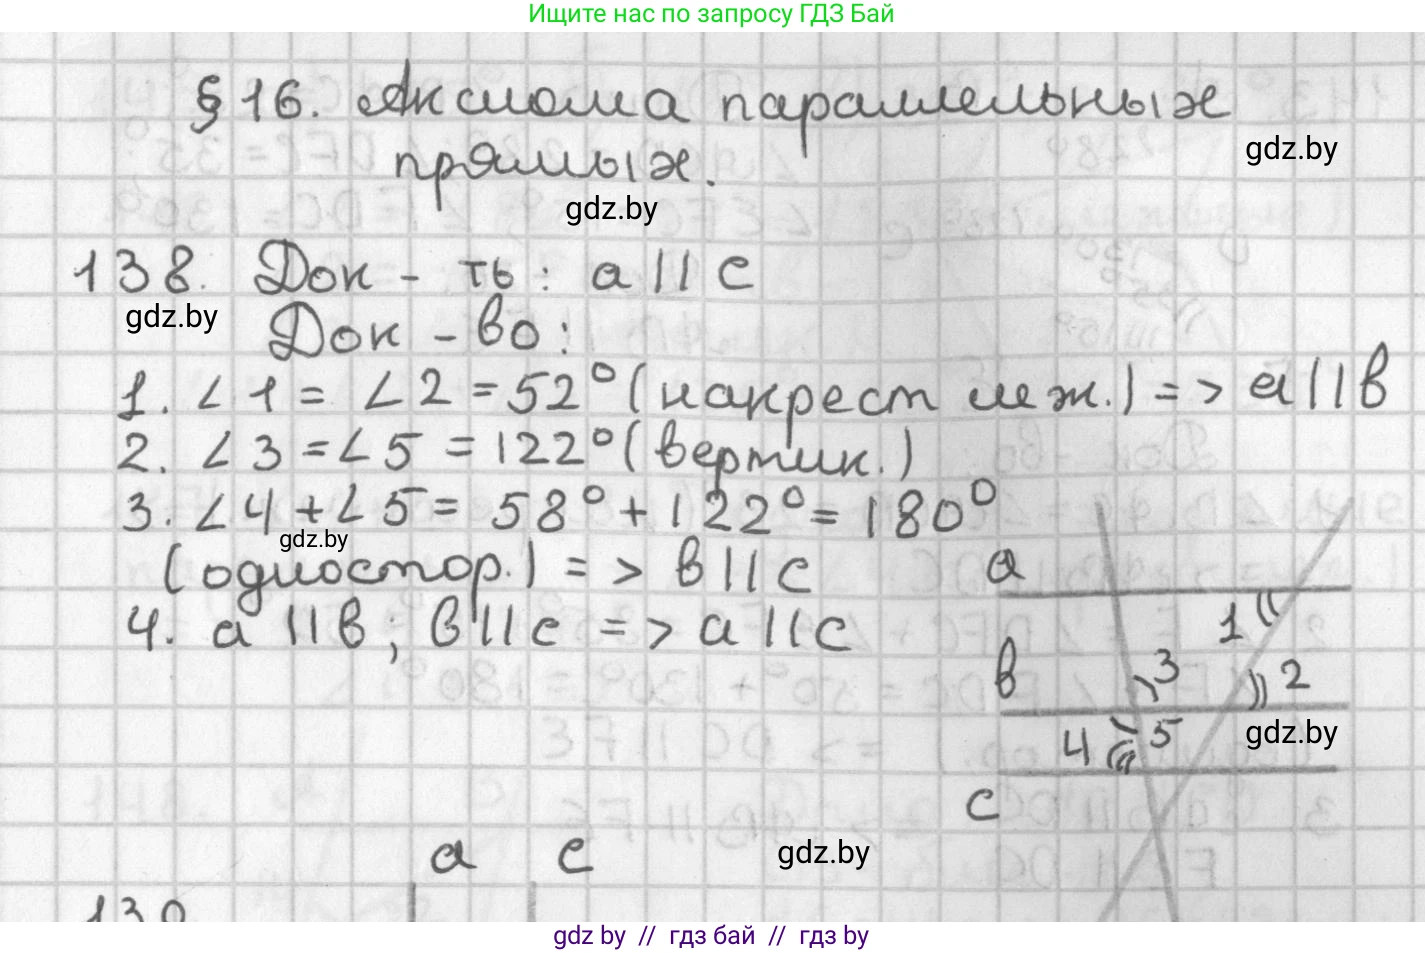 Ищите нас по запросу ГДЗ Бай
§ 16. Аксиома параллельных
прямых.
gdz.by
gdz.by
138. Док - ть: а || с
gdz.by
Док - во:
1. ∠1 = ∠2 = 52° (накрест леж.) => а || в
2. ∠3 = ∠5 = 122° (вертик.)
3. ∠4 + ∠5 = 58° + 122° = 180°
gdz.by
(одностор.) => в || с
4. а || в; в || с => а || с
а
1
в
3
2
4
5
gdz.by
с
а с
gdz.by
139
gdz by // гдз бай // гдз by